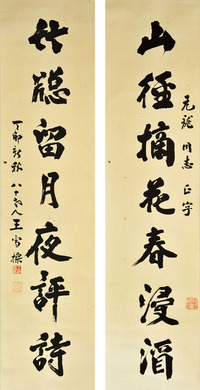 山径摘花春浸酒
元龍同志正字
竹窗留月夜評詩
丁卯新秋八十老人王雪樵